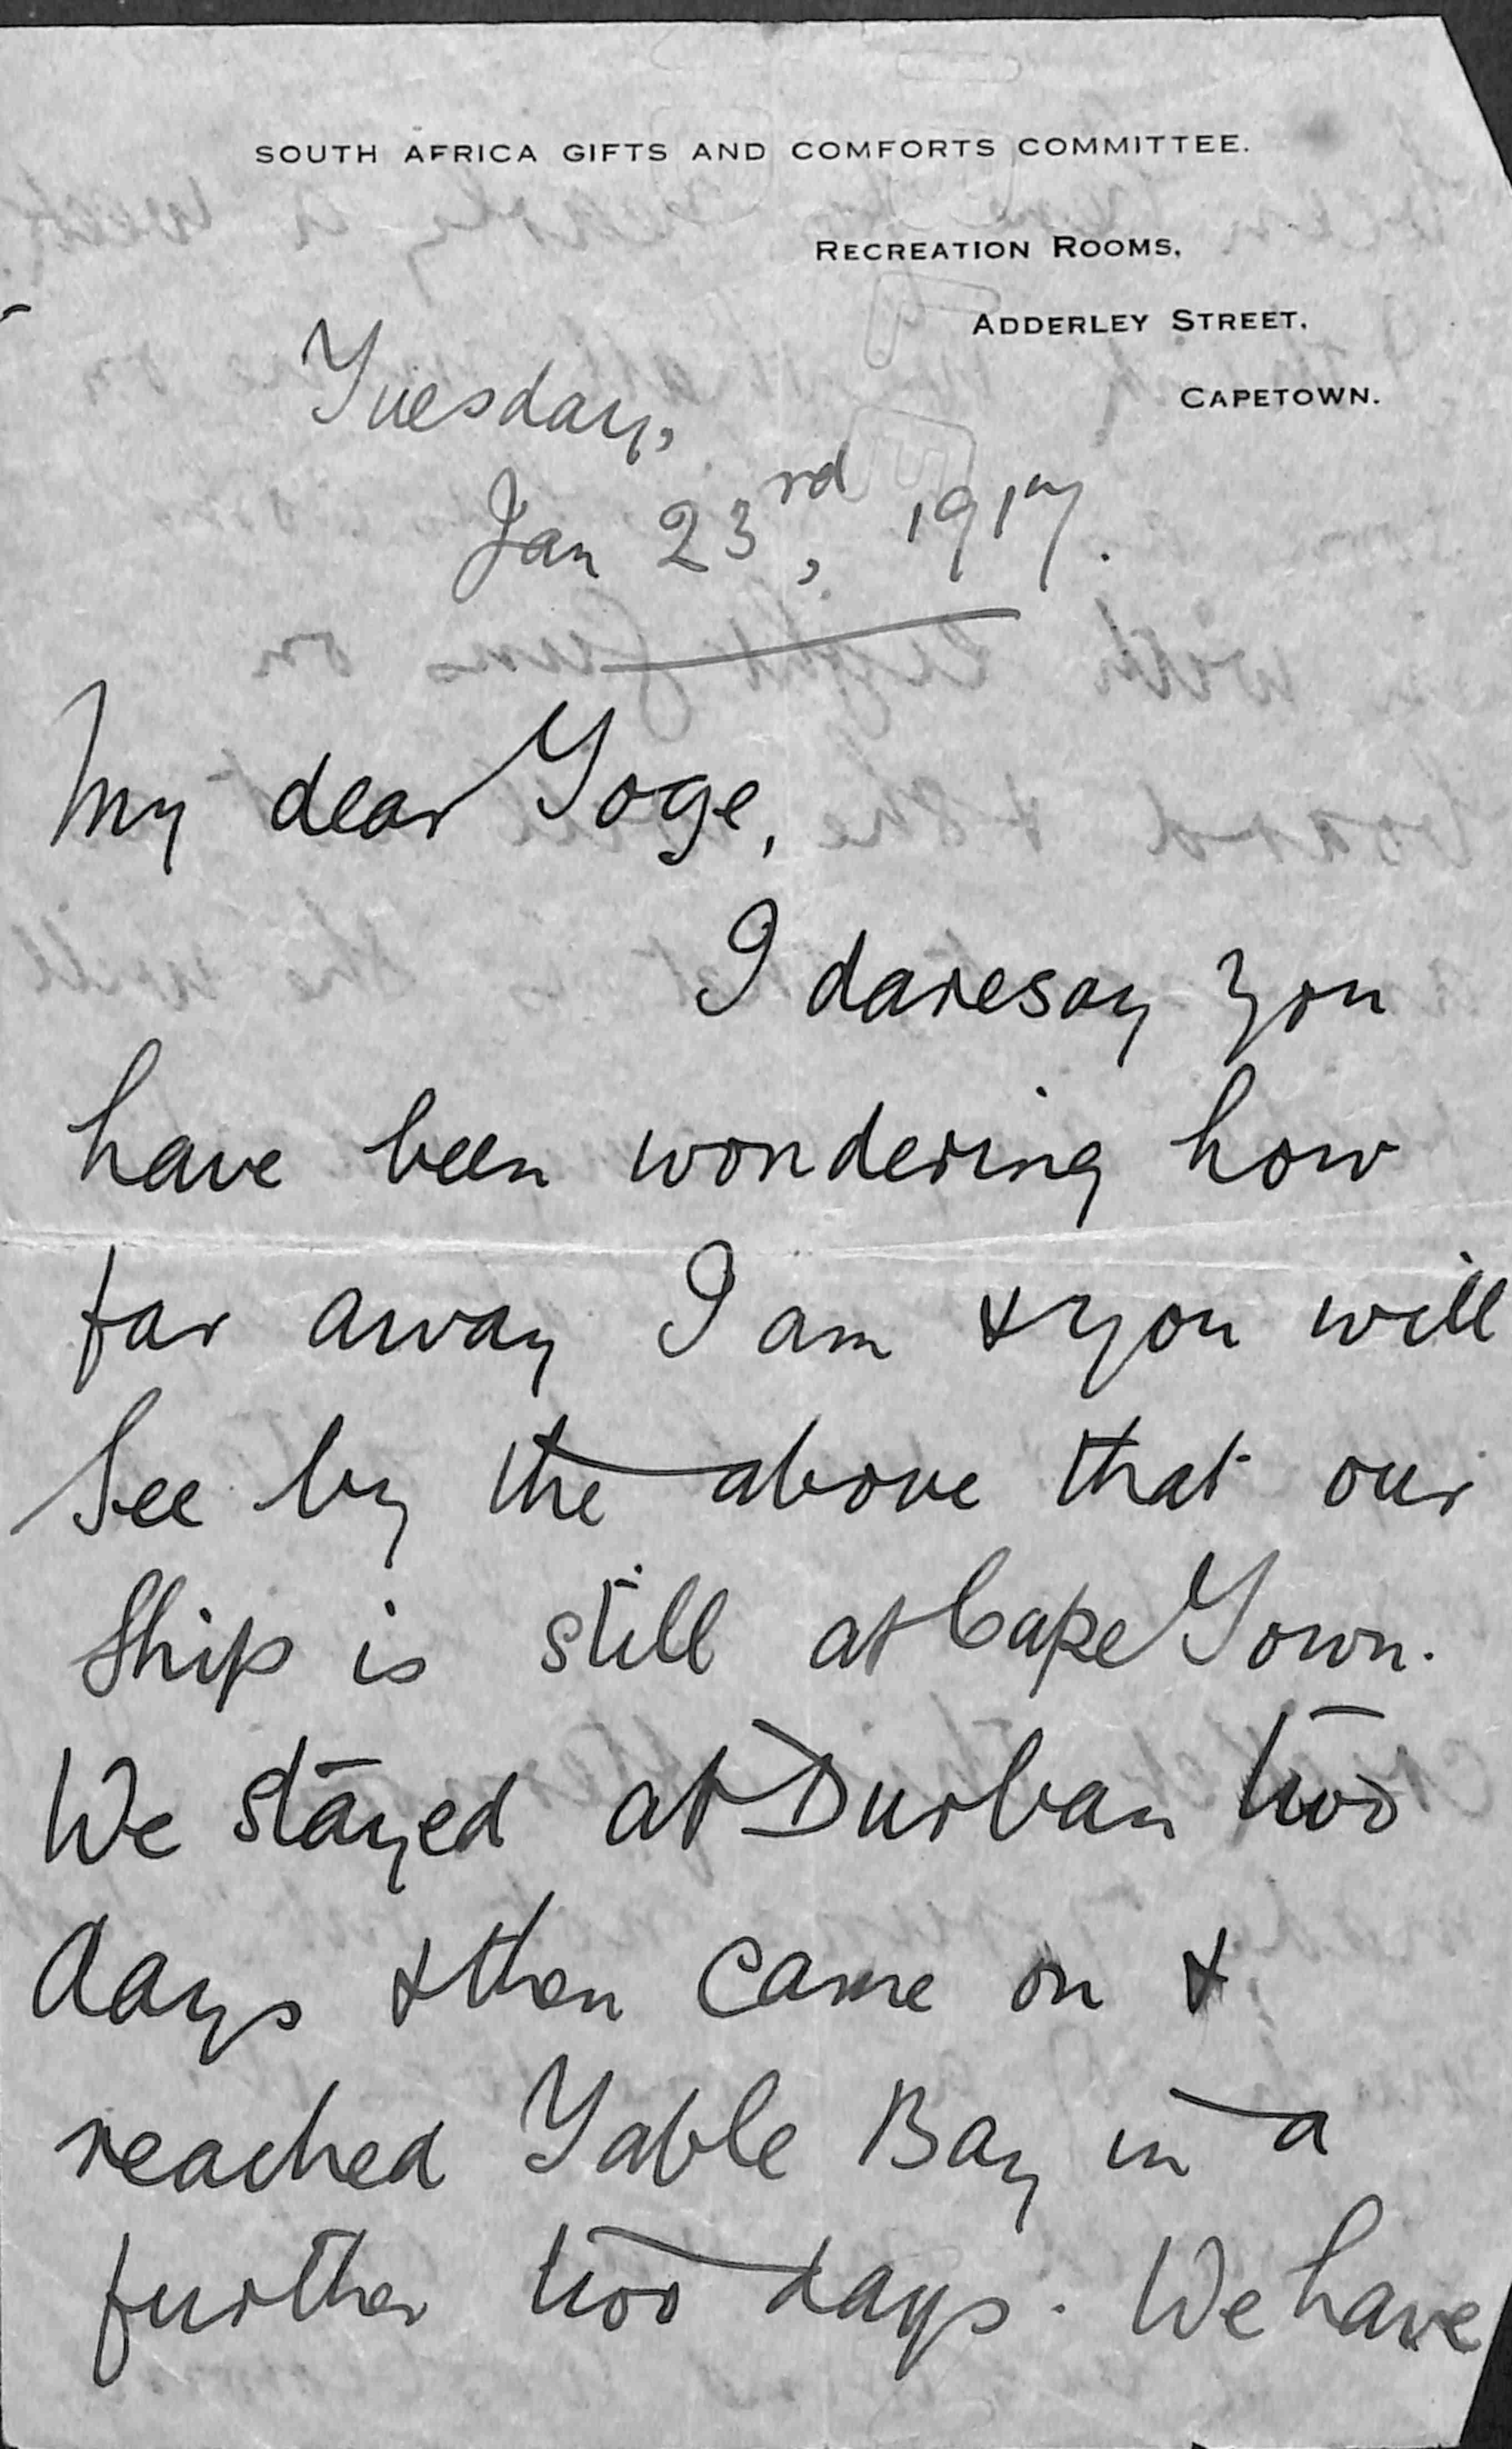 SOUTH AFRICA GIFTS AND COMFORTS COMMITTEE.
RECREATION ROOMS,
ADDERLEY STREET,
CAPETOWN.
Tuesday,
Jan 23rd, 1917.
My dear Toge,
I daresay you
have been wondering how
far away I am & you will
see by the above that our
ship is still at Cape Town.
We stayed at Durban two
days & then came on &
reached Table Bay in a
further two days. We have